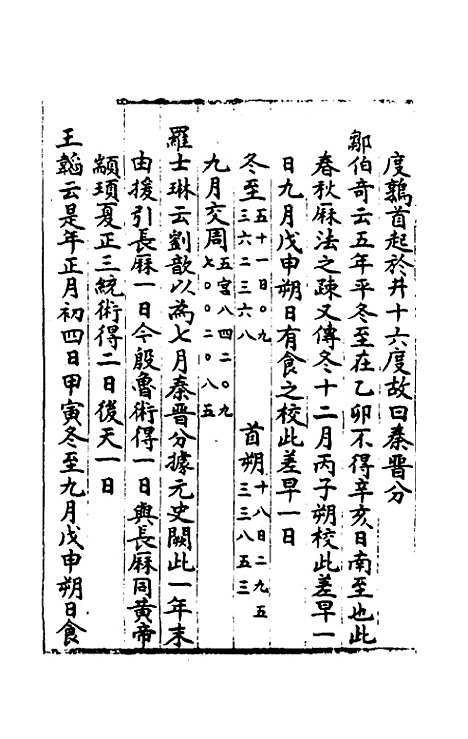 度鶉首起於井十六度故曰秦晉分
鄒伯奇云五年平冬至在乙卯不得辛亥日南至也此
春秋厤法之疎又傳冬十二月丙子朔校此差早一
日九月戊申朔日有食之校此差早一日
冬至五十一日〇九三六二三六八　首朔十八日二九五三三八五三
九月交周五宮八四二〇九七〇〇二〇八五
羅士琳云劉歆以為七月秦晉分據元史闕此一年末
由援引長厤一日今殷魯術得一日與長厤同黃帝
顓頊夏正三統術得二日後天一日
王韜云是年正月初四日甲寅冬至九月戊申朔日食